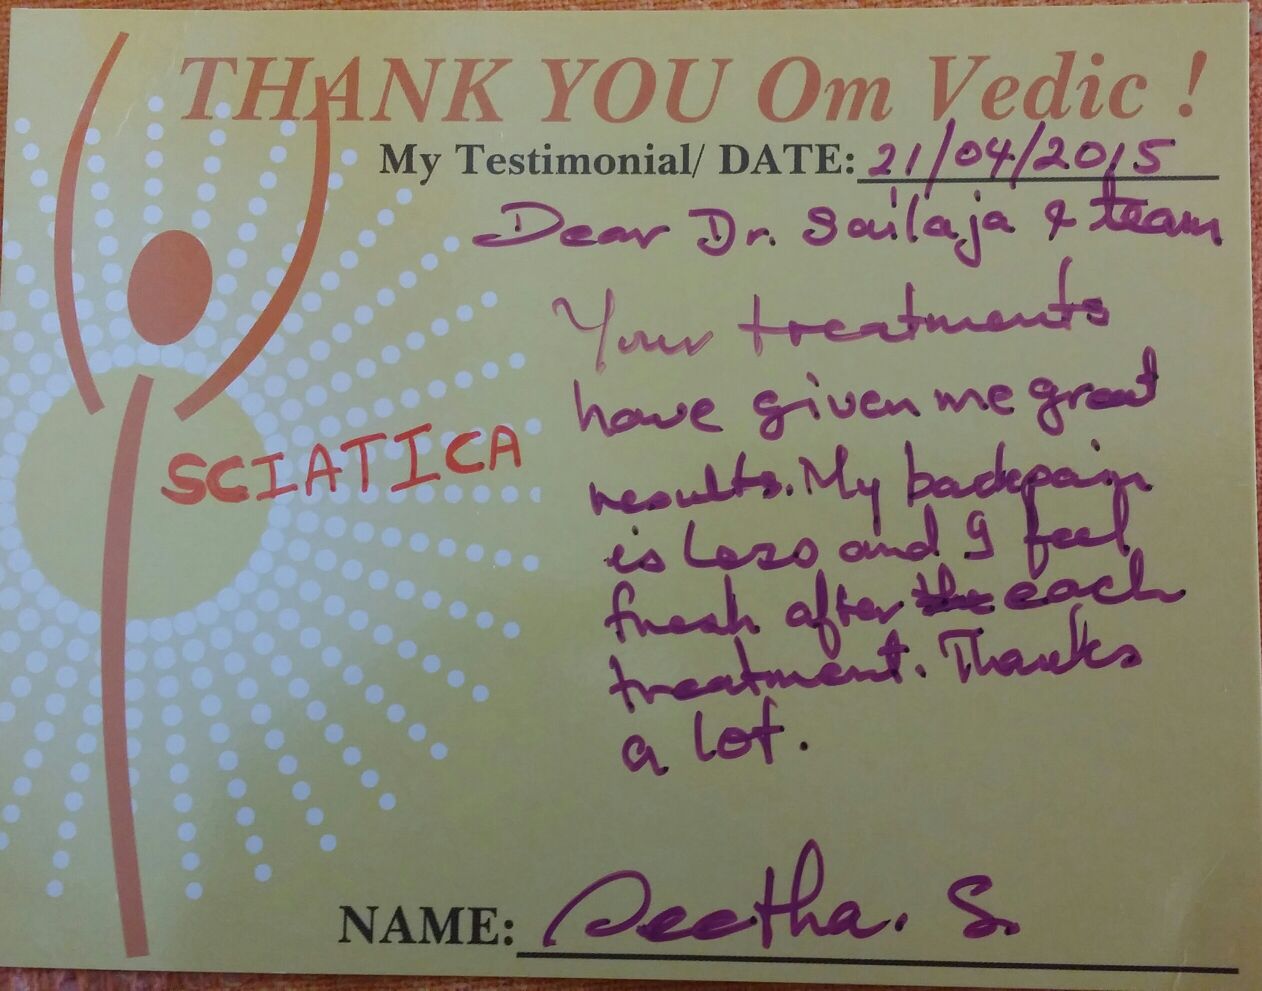 THANK YOU Om Vedic !
My Testimonial/ DATE: 21/04/2015
Dear Dr. Sailaja & team
Your treatments
have given me great
results. My backpain
is less and I feel
fresh after the each
treatment. Thanks
a lot.
SCIATICA
NAME: Seetha. S.